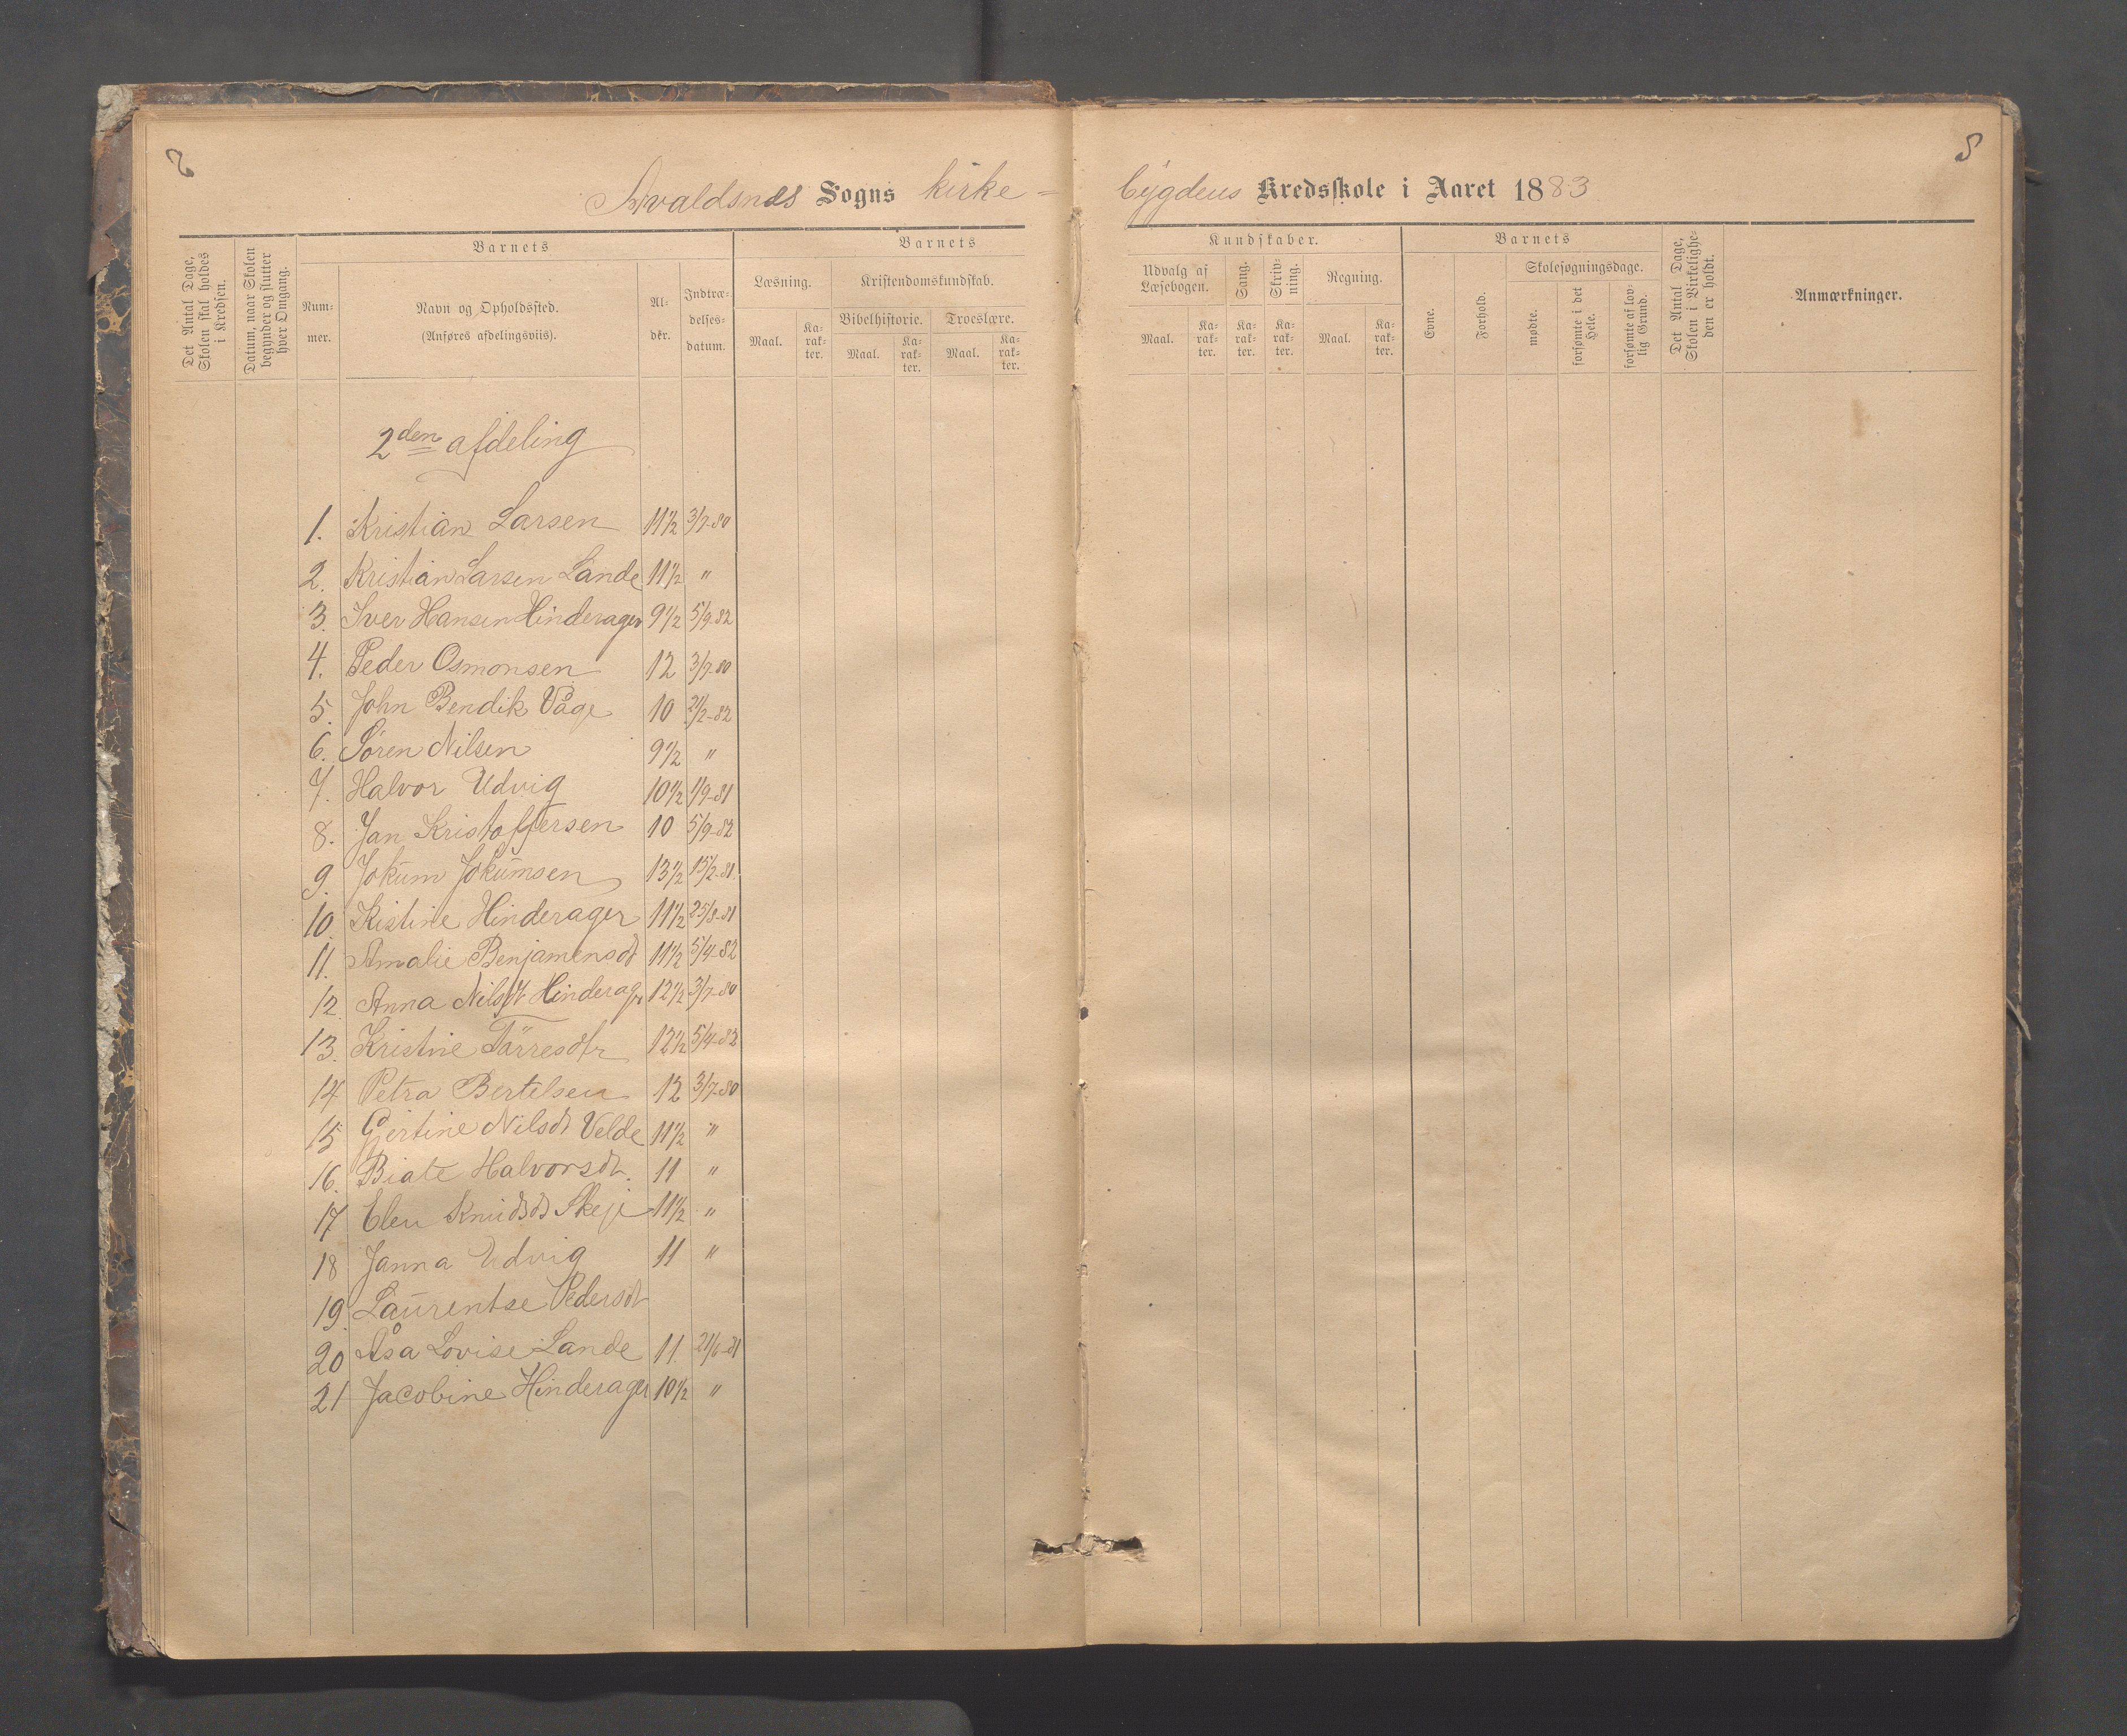 Avaldsnes Sogns kirke=
bygdens Kredsskole i Aaret 1883
8
Det Antal Dage, Skolen skal holdes i Kredsen.
Datum, naar Skolen begynder og slutter hver Omgang.
Barnets
Num-
mer.
Navn og Opholdssted.
(Anføres afdelingsviis).
Al-
der.
Indtræ-
delses-
datum.
Barnets
Læsning.
Maal.
Ka-
rak-
ter.
Kristendomskundskab.
Bibelhistorie.
Maal.
Ka-
rak-
ter.
Troeslære.
Maal.
Ka-
rak-
ter.
Kundskaber.
Udvalg af
Læsebogen.
Maal.
Ka-
rak-
ter.
Sang.
Ka-
rak-
ter.
Skriv-
ning.
Ka-
rak-
ter.
Regning.
Maal.
Ka-
rak-
ter.
Barnets
Evne.
Forhold.
Skolesøgningsdage.
mødte.
forsømte i det
Hele.
forsømte af lov-
lig Grund.
Det Antal Dage,
Skolen i Virkelighe-
den er holdt.
Anmærkninger.
2den afdeling
1. Kristian Larsen 11½ 3/7-80
2. Kristian Larsen Lande 11½ "
3. Iver Hansen Hinderager 9½ 5/9-82
4. Peder Osmonsen 12 3/7-80
5. John Bendik Våge 10 21/2-82
6. Sören Nilsen 9½ "
7. Halvor Udvig 10½ 1/9-81
8. Jan Kristoffersen 10 5/9-82
9. Jokum Jokumsen 13½ 15/2-81.
10. Kistine Hinderager 11½ 25/8-81
11. Amalie Benjaminsdt 11½ 5/4-82
12. Anna Nilsdt Hinderagr 12½ 3/7-80
13. Kristine Törresdtr 12½ 5/4-82
14 Petra Bertelsen 12 3/7-80
15 Gjertine Nilsdt Velde 11½ "
16. Biate Halvorsdt. 11 "
17 Elen Knudsdt Skeje 11½ "
18 Janna Udvig 11 "
19. Laurentse Pedersdt
20 Åsa Lovise Lande 11. 21/6-81
21 Jacobine Hinderager 10½ "